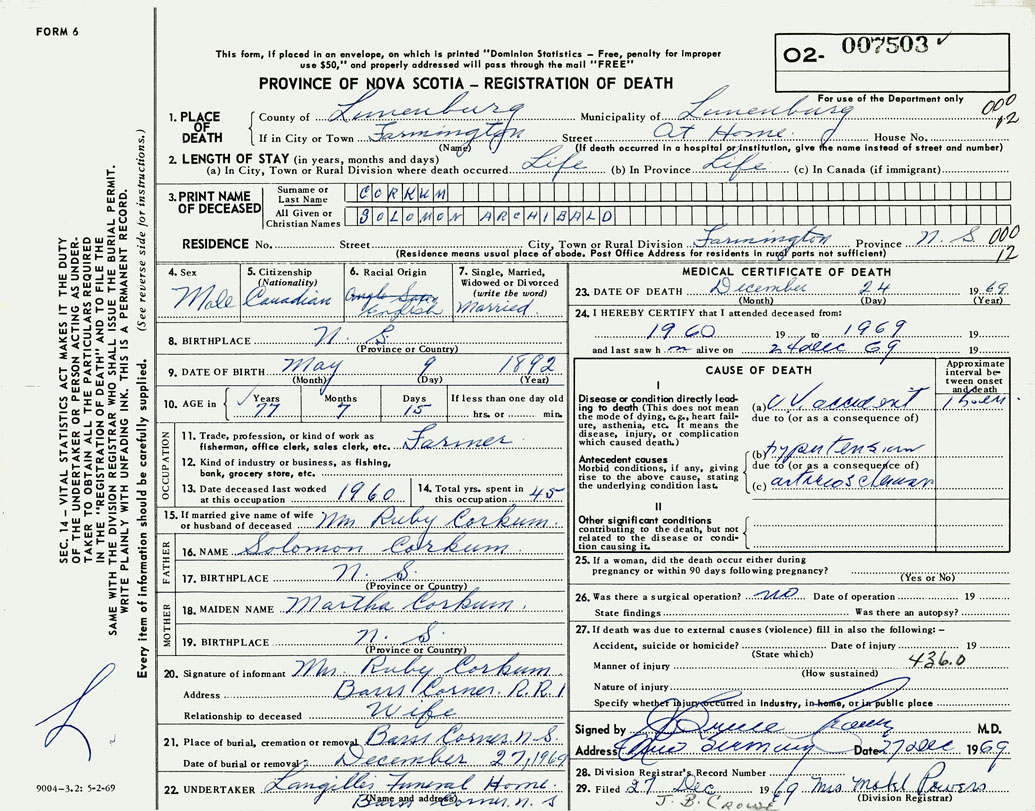 FORM 6
This form, if placed in an envelope, on which is printed "Dominion Statistics – Free, penalty for improper
use $50," and properly addressed will pass through the mail "FREE"
O2- 007503 ✓
PROVINCE OF NOVA SCOTIA – REGISTRATION OF DEATH
For use of the Department only
000
12
1. PLACE OF DEATH
County of Lunenburg Municipality of Lunenburg
If in City or Town Farmington Street At Home. House No.
(Name) (If death occurred in a hospital or institution, give the name instead of street and number)
2. LENGTH OF STAY (in years, months and days)
(a) In City, Town or Rural Division where death occurred Life (b) In Province Life (c) In Canada (if immigrant)
3. PRINT NAME OF DECEASED
Surname or Last Name CORKUM
All Given or Christian Names SOLOMON ARCHIBALD
RESIDENCE No. Street City, Town or Rural Division Farmington Province N. S. 000
12
(Residence means usual place of abode. Post Office Address for residents in rural parts not sufficient)
4. Sex
Male
5. Citizenship
(Nationality)
Canadian
6. Racial Origin
English
7. Single, Married,
Widowed or Divorced
(write the word)
Married.
8. BIRTHPLACE N. S.
(Province or Country)
9. DATE OF BIRTH May 9 1892
(Month) (Day) (Year)
10. AGE in Years Months Days If less than one day old
77 7 15 hrs. or min.
OCCUPATION
11. Trade, profession, or kind of work as
fisherman, office clerk, sales clerk, etc. Farmer.
12. Kind of industry or business, as fishing,
bank, grocery store, etc.
13. Date deceased last worked
at this occupation 1960
14. Total yrs. spent in
this occupation 45
15. If married give name of wife
or husband of deceased Mrs Ruby Corkum.
FATHER
16. NAME Solomon Corkum.
17. BIRTHPLACE N. S.
(Province or Country)
MOTHER
18. MAIDEN NAME Martha Corkum.
19. BIRTHPLACE N. S.
(Province or Country)
20. Signature of informant Mrs. Ruby Corkum
Address Barss Corner. R.R.1
Relationship to deceased Wife
21. Place of burial, cremation or removal Barss Corner N.S.
Date of burial or removal December 27, 1969
22. UNDERTAKER Langilles Funeral Home.
(Name and address)
Barss Corner. N. S
MEDICAL CERTIFICATE OF DEATH
23. DATE OF DEATH December 24 1969.
(Month) (Day) (Year)
24. I HEREBY CERTIFY that I attended deceased from:
1960 19 to 1969 19
and last saw h m alive on 24 dec 69 19
CAUSE OF DEATH
Approximate
interval be-
tween onset
and death
I
Disease or condition directly lead-
ing to death (This does not mean
the mode of dying, e.g., heart fail-
ure, asthenia, etc. It means the
disease, injury, or complication
which caused death.)
(a) CV accident
due to (or as a consequence of)
Antecedent causes
Morbid conditions, if any, giving
rise to the above cause, stating
the underlying condition last.
(b) hypertension
due to (or as a consequence of)
(c)
II
Other significant conditions
contributing to the death, but not
related to the disease or condi-
tion causing it.
25. If a woman, did the death occur either during
pregnancy or within 90 days following pregnancy?
(Yes or No)
26. Was there a surgical operation? no Date of operation 19
State findings Was there an autopsy?
27. If death was due to external causes (violence) fill in also the following: –
Accident, suicide or homicide? Date of injury 19
(State which)
436.0
Manner of injury
(How sustained)
Nature of injury
Specify whether injury occurred in Industry, in home, or in public place
Signed by M.D.
Address New Germany Date 27 dec 1969
28. Division Registrar's Record Number
29. Filed 27 Dec 1969 Powers
(Division Registrar)
J. B. CROWE
SEC. 14 – VITAL STATISTICS ACT MAKES IT THE DUTY
OF THE UNDERTAKER OR PERSON ACTING AS UNDER-
TAKER TO OBTAIN ALL THE PARTICULARS REQUIRED
IN THE "REGISTRATION OF DEATH" AND TO FILE THE
SAME WITH THE DIVISION REGISTRAR WHO SHALL ISSUE THE BURIAL PERMIT.
WRITE PLAINLY WITH UNFADING INK. THIS IS A PERMANENT RECORD.
Every item of information should be carefully supplied. (See reverse side for instructions.)
9004-3.2: 5-2-69